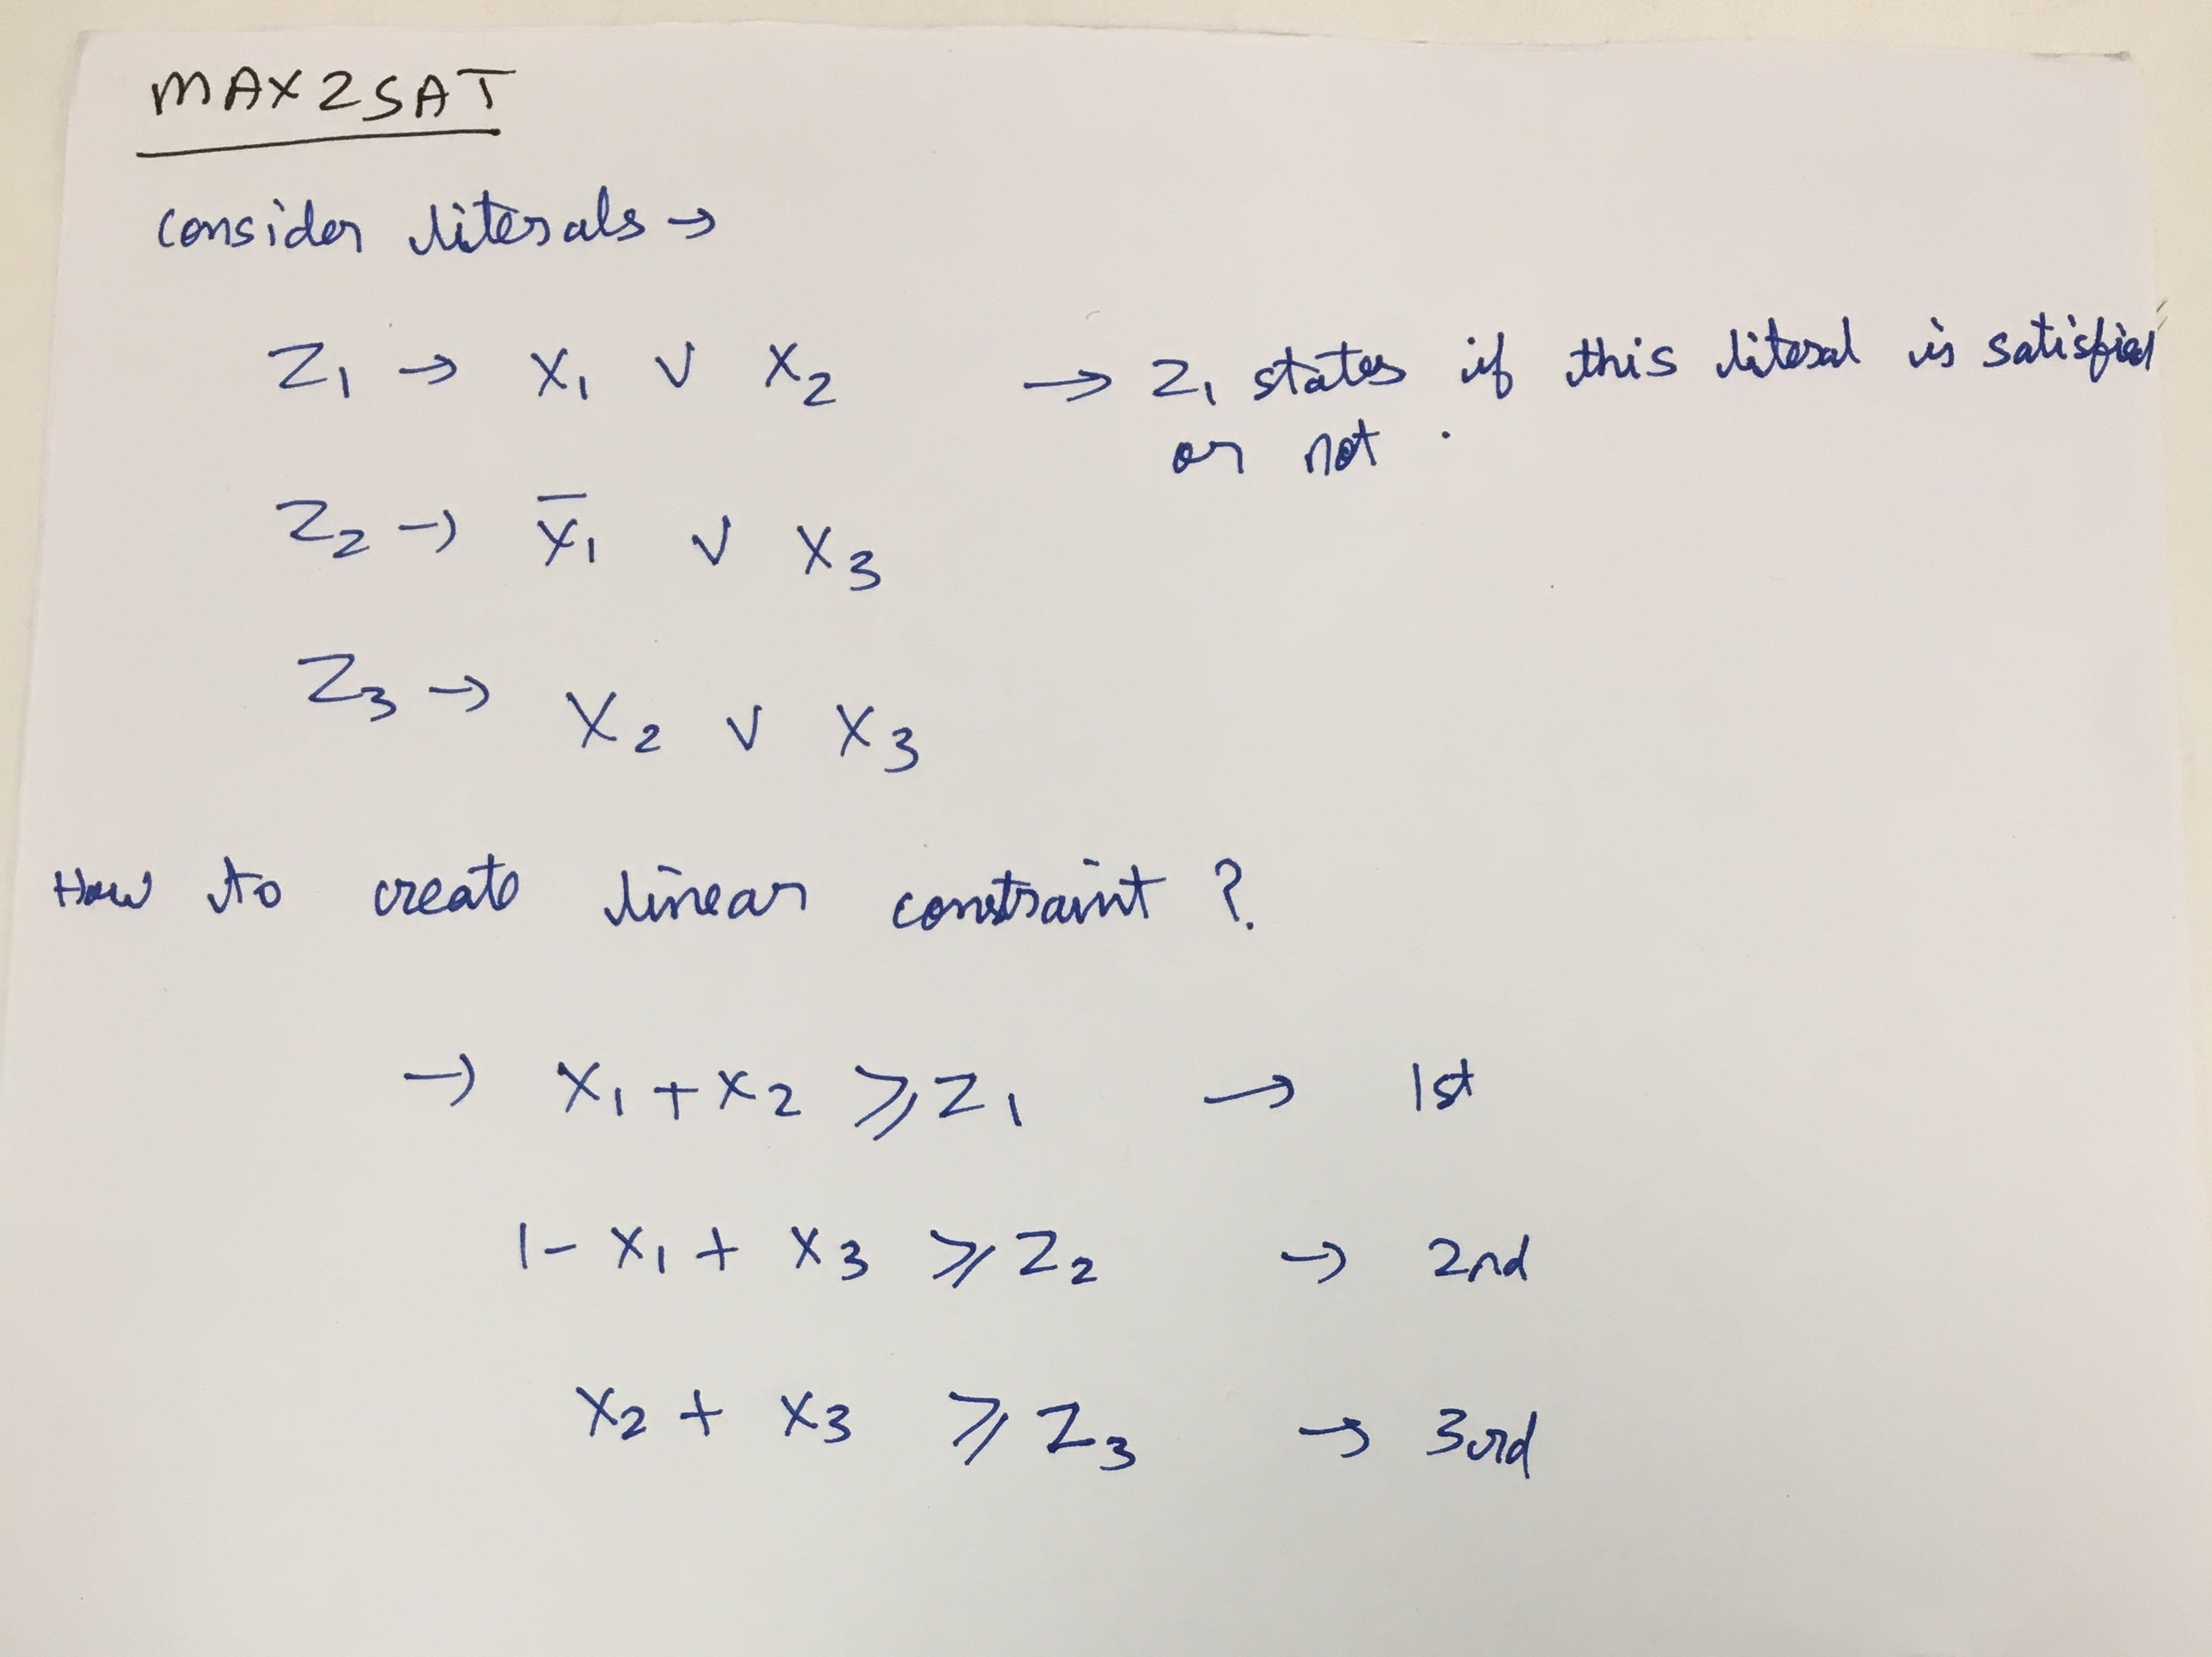 MAX2SAT
consider literals →
Z₁ → X₁ ∨ X₂ → Z₁ states if this literal is satisfied
or not .
Z₂ → X̅₁ ∨ X₃
Z₃ → X₂ ∨ X₃
How to create linear constraint ?
→ X₁ + X₂ ⩾ Z₁ → 1st
1 - X₁ + X₃ ⩾ Z₂ → 2nd
X₂ + X₃ ⩾ Z₃ → 3rd